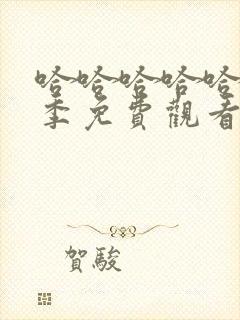 哈哈哈哈哈
季免費觀看
賀駿